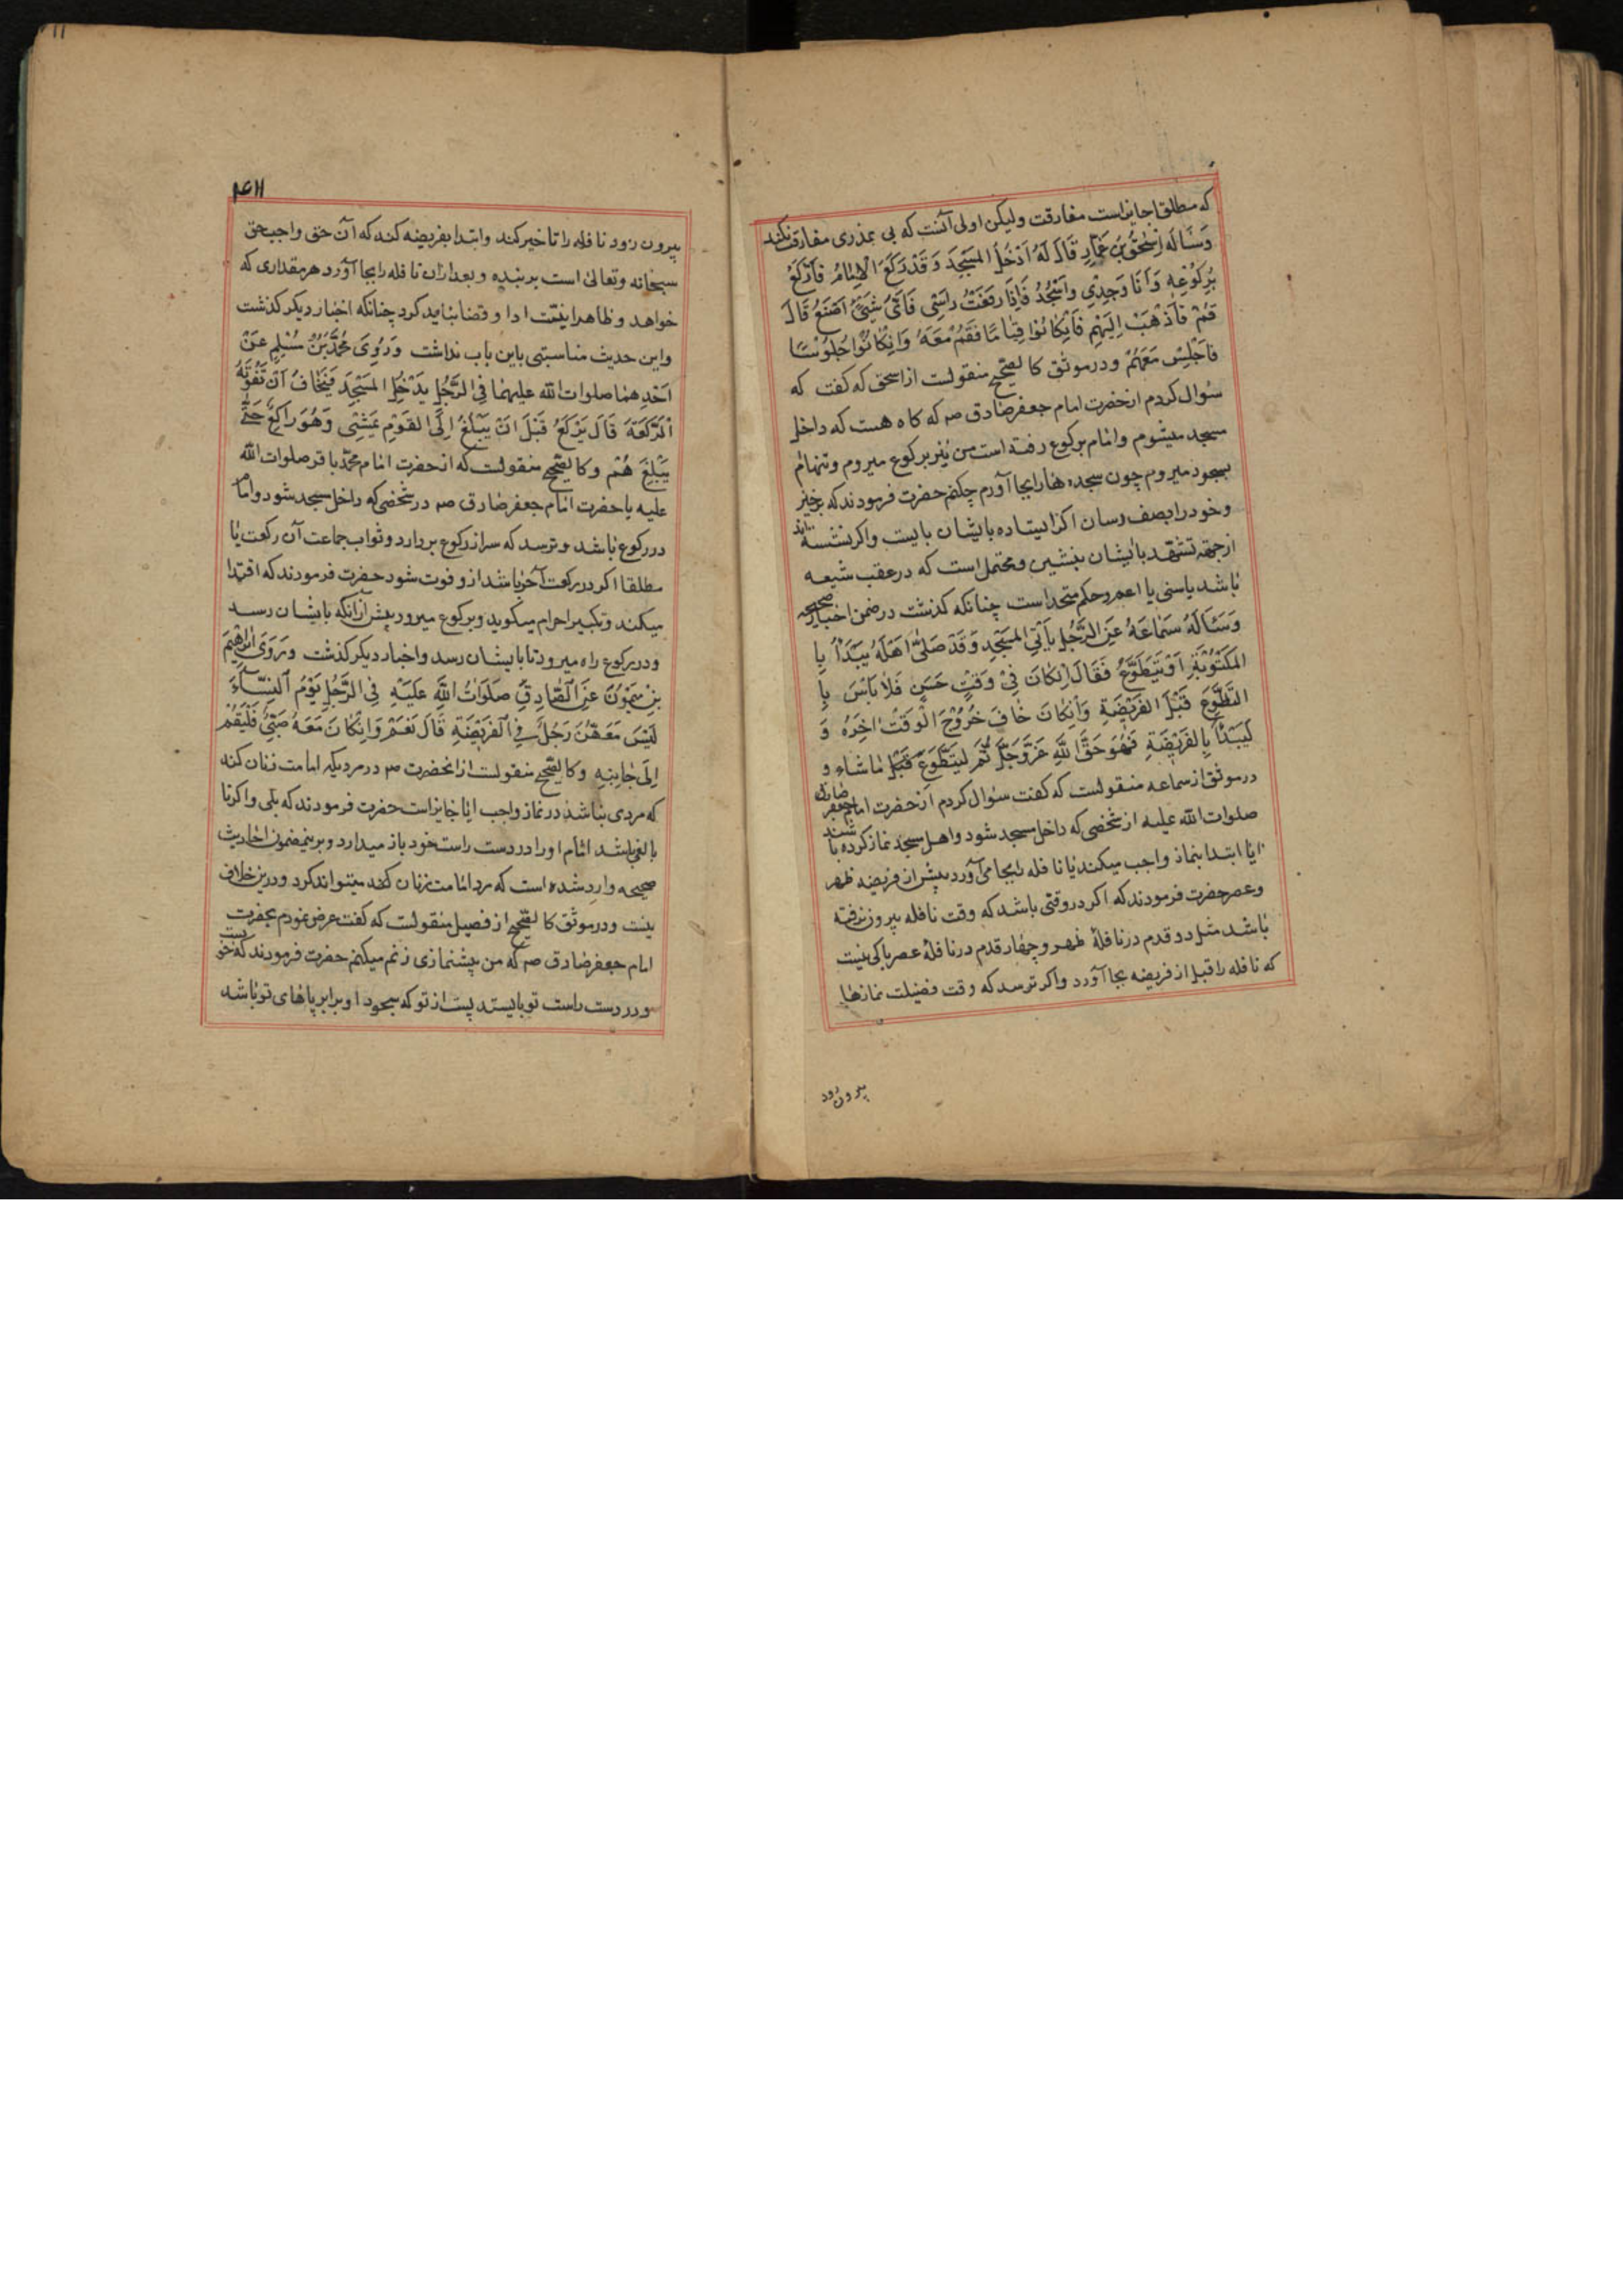 که مطلقا جایزاست مفارقت ولیکن اولی آنست که بی عذری مفارقت نکند
وَسَاَلَه اِسْحٰقُ بْنُ عَمّارٍ قَالَ لَهُ اَدْخُلُ المَسْجِدَ وَقَدْ رَکَعَ الْاِمٰامُ فَاَرْکَعُ
بِرُکُوْعِهِ وَاَنَا وَحْدِيْ وَاَسْجُدُ فَاِذَا رَفَعْتُ رَاْسِیْ فَاَیَّ شَیْءٍ اَصْنَعُ قَالَ
قُمْ فَاذْهَبْ اِلَیْهِمْ فَاِنْکَانُوْا قِیٰامًا فَقُمْ مَعَهُمْ وَاِنْکَانُوْا جُلُوْسًا
فَاجْلِسْ مَعَهُمْ ودرموثق کالصحیح منقولست از اسحق که کفت که
سؤال کردم ازحضرت امام جعفرصادق صه که کاه هست که داخل
مسجد میشوم وامام برکوع رفته است من نیز برکوع میروم وتنها
بسجود میروم چون سجده هارا بجا آورم چکنم حضرت فرمودند که برخیز
وخود را بصف رسان اکر ایستاده باایشان بایست واکر نشسته اند
ازجهة تشهد باایشان بنشین ومحتمل است که درعقب شیعه
باشد یاسنی یا اعم وحکم متحداست چنانکه کذشت درضمن اخبار صحیحه
وَسَئَالَهُ سَمٰاعَةُ عَنِ الرَّجُلِ یَاْتِی المَسْجِدَ وَقَدْ صَلّیٰ اَهْلُهُ یَبْدَأُ بِا
المَکْتُوْبَةِ اَوْ یَتَطَوَّعُ فَقَالَ اِنْکَانَ فِیْ وَقْتٍ حَسَنٍ فَلَا بَاْسَ بِا
التَّطَوُّعِ قَبْلَ الفَرِیْضَةِ وَاِنْکَانَ خٰافَ خُرُوْجَ الْوَقْتِ اَخِّرَهُ وَ
لْیَبْدَأْ بِالفَرِیْضَةِ فَهُوَ حَقُّ اللّٰهِ عَزَّوَجَلَّ ثُمَّ لْیَتَطَوَّعْ قَبْلَ مٰا شٰاءَ و
درموثق ازسماعه منقولست که کفت سؤال کردم ازحضرت امام جعفر صادق
صلوات الله علیه ازشخصی که داخل مسجد شود واهل مسجد نماز کرده باشند
ایا ابتدا بنماز واجب میکند یا نافله بجا می آورد پیش از فریضه ظهر
وعصر حضرت فرمودند که اکر در وقتی باشد که وقت نافله بیرون نرفته
باشد مثل دو قدم درنافلهٔ ظهر و چهار قدم درنافلهٔ عصر باکی نیست
که نافله را قبل از فریضه بجا آورد واکر ترسد که وقت فضیلت نمازها
بیرون رود
۴۱۱
بیرون رود نافله را تاخیر کند وابتدا بفریضه کند که آن حق واجب حق
سبحانه وتعالی است بر بنده و بعدازان نافله را بجا آورد هرمقداری که
خواهد وظاهرا نیّت ادا وقضا نباید کرد چنانکه اخبار دیکر کذشت
واین حدیث مناسبتی باین باب نداشت وَرُوِیَ مُحَمَّدُ بْنُ مُسْلِمٍ عَنْ
اَحَدِهما صلوات الله علیهما فِی الرَّجُلِ یَدْخُلُ المَسْجِدَ فَیَخٰافُ اَنْ تَفُوْتَهُ
الْرَّکْعَةَ قَالَ یَرْکَعُ قَبْلَ اَنْ یَبْلُغَ اِلَی القَوْمِ یَمْشِیْ وَهُوَ رَاکِعٌ حَتّٰی
یَبْلُغَ هُمْ وکالصحیح منقولست که از حضرت امام محمّد باقر صلوات الله
علیه یا حضرت امام جعفر صادق صه درشخصی که داخل مسجد شود وامام
دررکوع باشد وترسد که سراز رکوع بردارد وثواب جماعت آن رکعت یا
مطلقا اکر در رکعت آخر باشد ازو فوت شود حضرت فرمودند که اقتدا
میکند وتکبیر احرام میکوید وبرکوع میرود پیش ازانکه بایشان رسد
ودر رکوع راه میرود تا بایشان رسد واخبار دیکر کذشت وَرَوَیٰ اِبْرٰاهِیْمَ
بْنِ مَیْمُوْنَ عَنِ الصّٰادِقِ صَلَوٰاتُ اللّٰهِ عَلَیْهِ فِی الرَّجُلِ یَؤُمُّ النِّسٰاءَ
لَیْسَ مَعَهُنَّ رَجُلٌ فِی الفَرِیْضَةِ قَالَ نَعَمْ وَاِنْکَانَ مَعَهُ صَبِیٌّ فَلْیَقُمْ
اِلَی جٰانِبِهِ وکالصحیح منقولست ازانحضرت صه درمردیکه امامت زنان کند
که مردی نباشد درنماز واجب ایا جایزاست حضرت فرمودند که بلی واکرنا
بالغی باشد امام اورا دردست راست خود باز میدارد وبرینمضمون احادیث
صحیحه وارد شده است که مرد امامت زنان کند میتواند کرد ودرین خلاف
نیست ودرموثق کالصحیح از فضیل منقولست که کفت عرض نمودم بحضرت
امام جعفر صادق صه که من پیشنمازی زنم میکنم حضرت فرمودند که خوبست
ودر دست راست تو بایستد پست از تو که سجود او برابر پاهای تو باشد